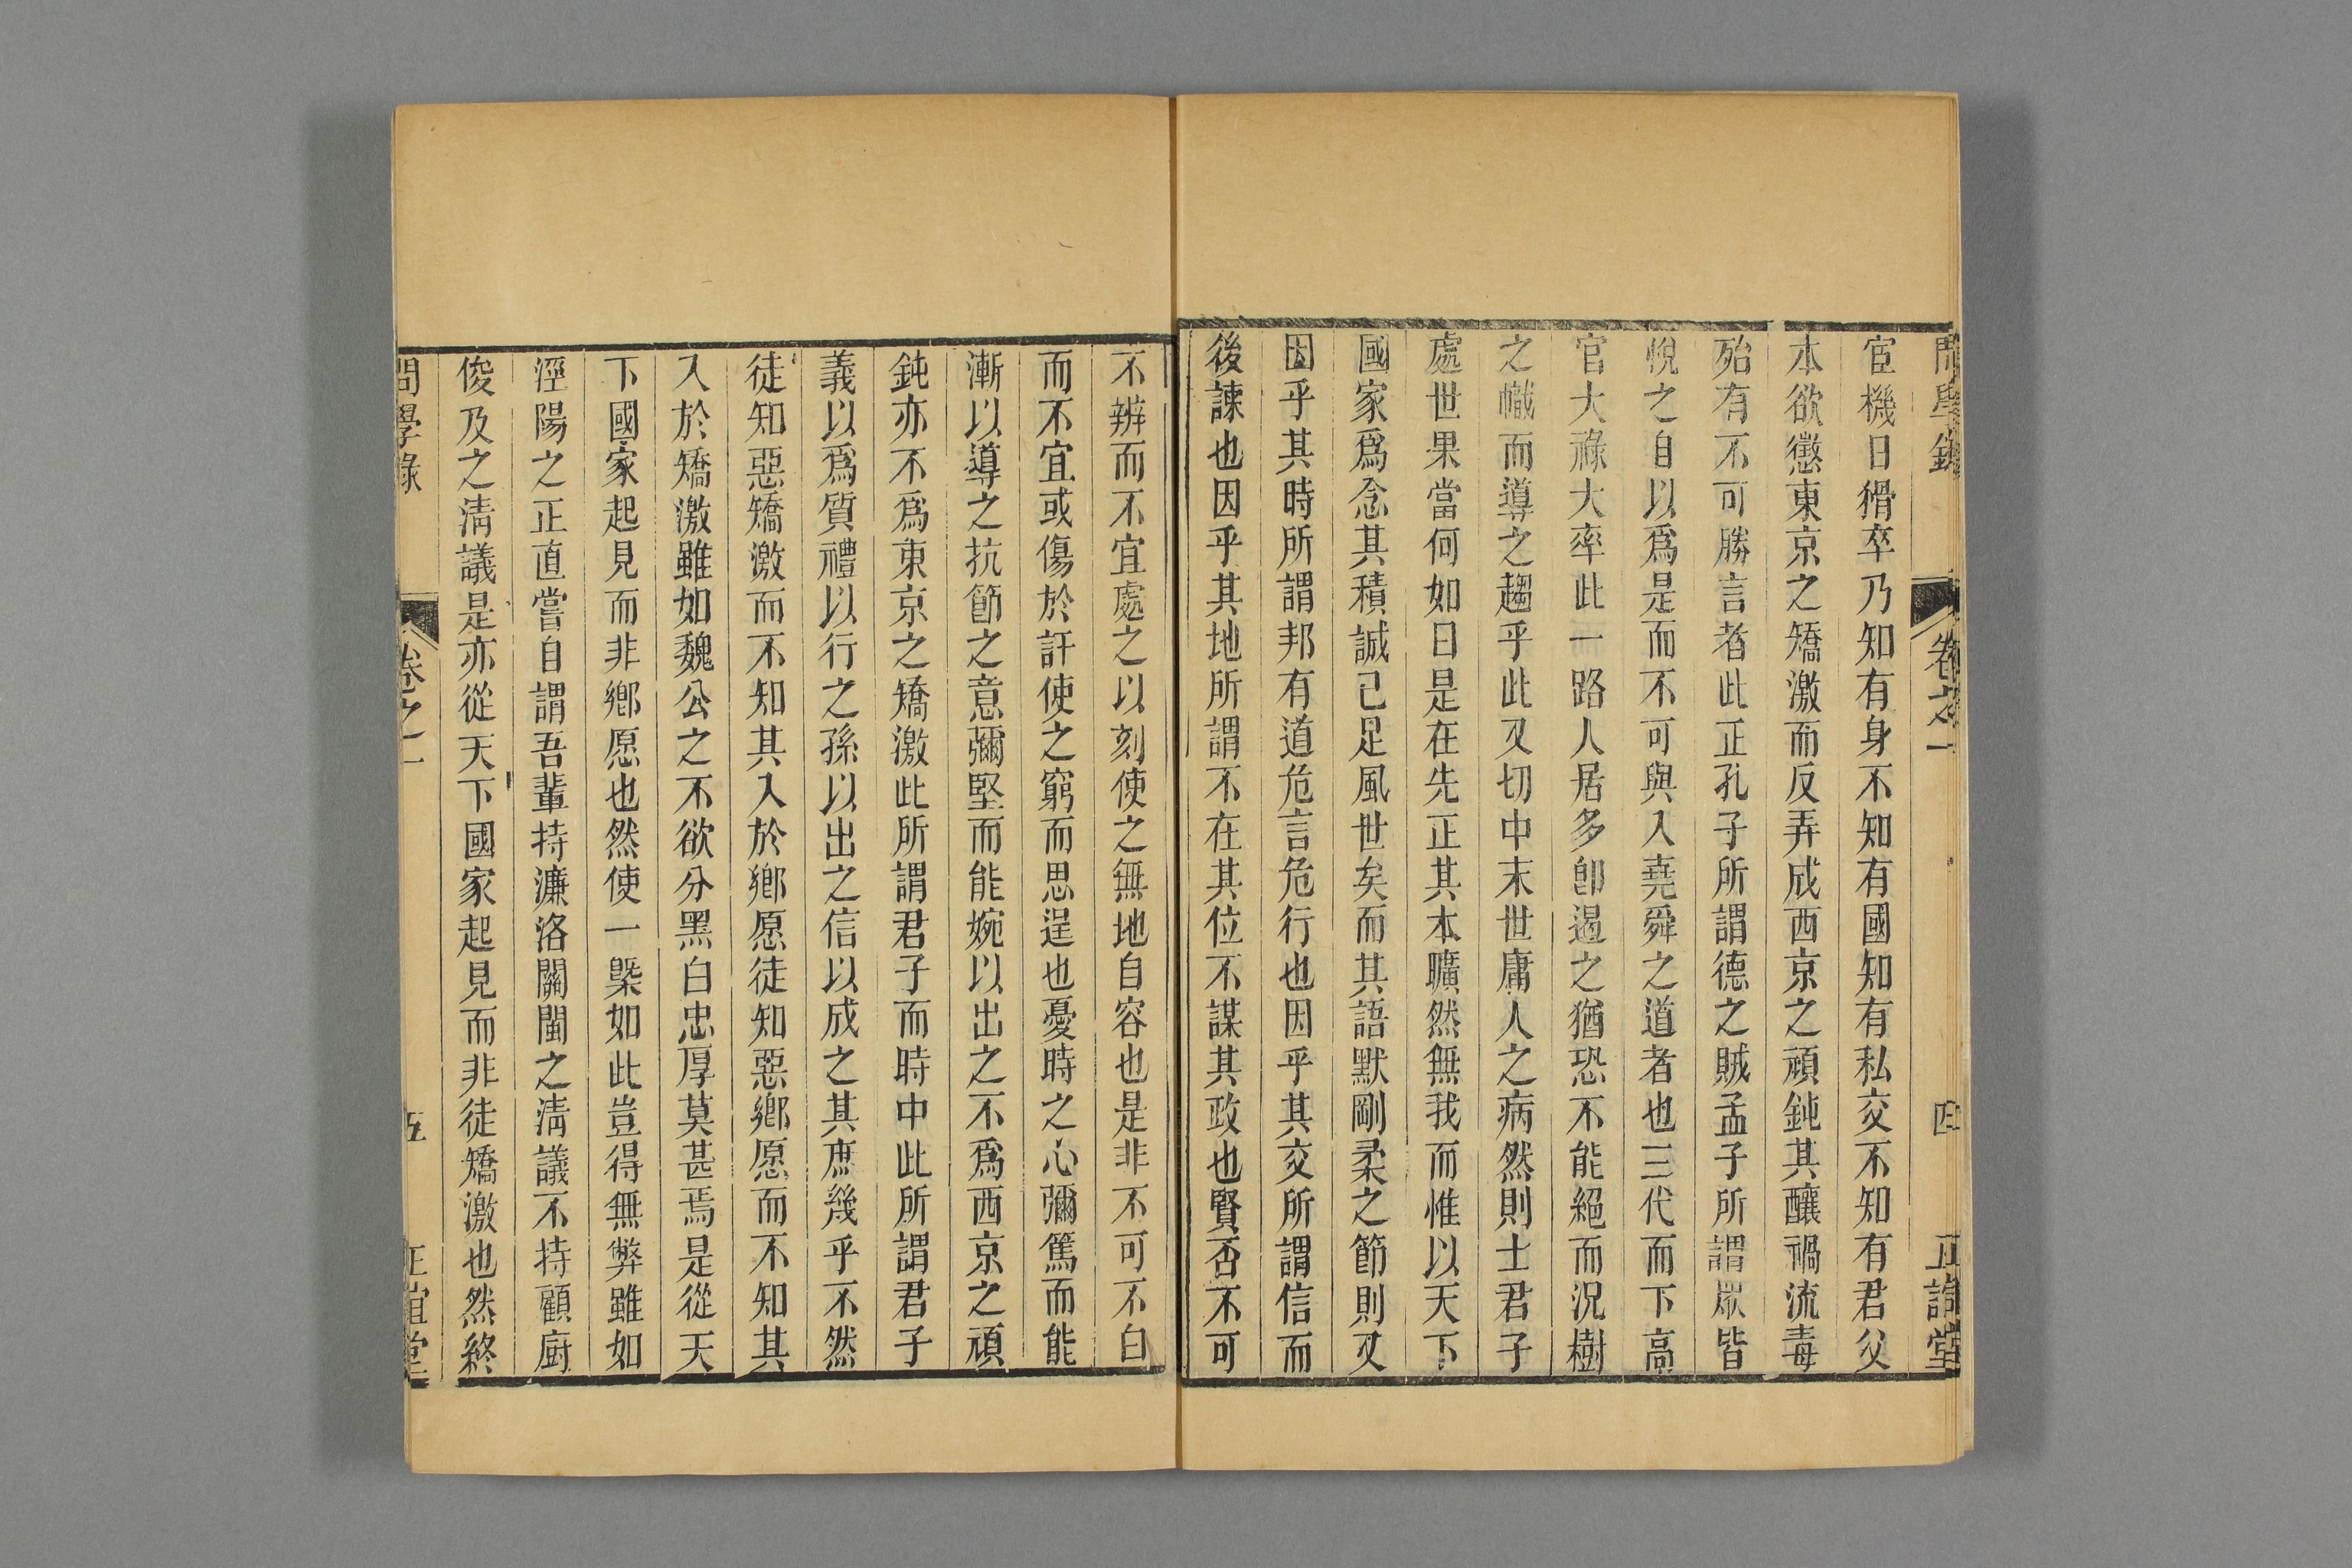 問學錄 卷之一 四 正誼堂
宦機日猾卒乃知有身不知有國知有私交不知有君父
本欲懲東京之矯激而反弄成西京之頑鈍其釀禍流毒
殆有不可勝言者此正孔子所謂德之賊孟子所謂眾皆
悅之自以爲是而不可與入堯舜之道者也三代而下高
官大祿大率此一路人居多卽遏之猶恐不能絕而況樹
之幟而導之趨乎此又切中末世庸人之病然則士君子
處世果當何如曰是在先正其本曠然無我而惟以天下
國家爲念其積誠已足風世矣而其語默剛柔之節則又
因乎其時所謂邦有道危言危行也因乎其交所謂信而
後諫也因乎其地所謂不在其位不謀其政也賢否不可
不辨而不宜處之以刻使之無地自容也是非不可不白
而不宜或傷於訐使之窮而思逞也憂時之心彌篤而能
漸以導之抗節之意彌堅而能婉以出之不爲西京之頑
鈍亦不爲東京之矯激此所謂君子而時中此所謂君子
義以爲質禮以行之孫以出之信以成之其庶幾乎不然
徒知惡矯激而不知其入於鄉愿徒知惡鄉愿而不知其
入於矯激雖如魏公之不欲分黑白忠厚莫甚焉是從天
下國家起見而非鄉愿也然使一槩如此豈得無弊雖如
涇陽之正直嘗自謂吾輩持濂洛關閩之清議不持顧廚
俊及之清議是亦從天下國家起見而非徒矯激也然終
問學錄 卷之一 五 正誼堂